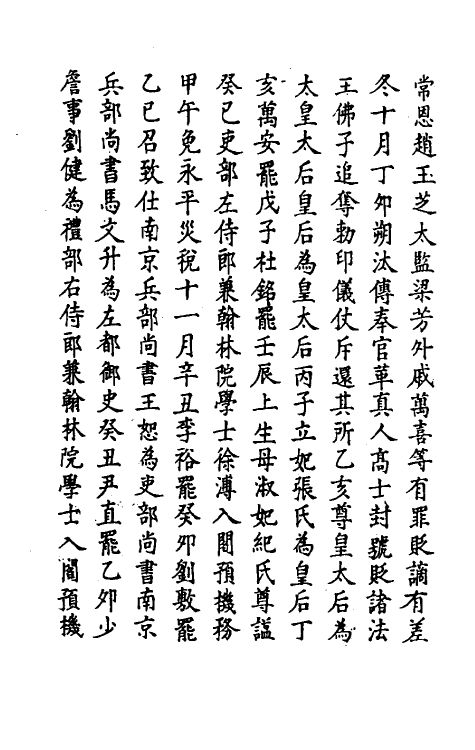 常恩趙玉芝太監梁芳外戚萬喜等有罪貶謫有差
冬十月丁卯朔汰傳奉官革真人高士封號貶諸法
王佛子追奪勅印儀仗斥還其所乙亥尊皇太后為
太皇太后皇后為皇太后丙子立妃張氏為皇后丁
亥萬安罷戊子杜銘罷壬辰上生母淑妃紀氏尊謚
癸巳吏部左侍郎兼翰林院學士徐溥入閣預機務
甲午免永平災稅十一月辛丑李裕罷癸卯劉敷罷
乙巳召致仕南京兵部尚書王恕為吏部尚書南京
兵部尚書馬文升為左都御史癸丑尹直罷乙卯少
詹事劉健為禮部右侍郎兼翰林院學士入閣預機